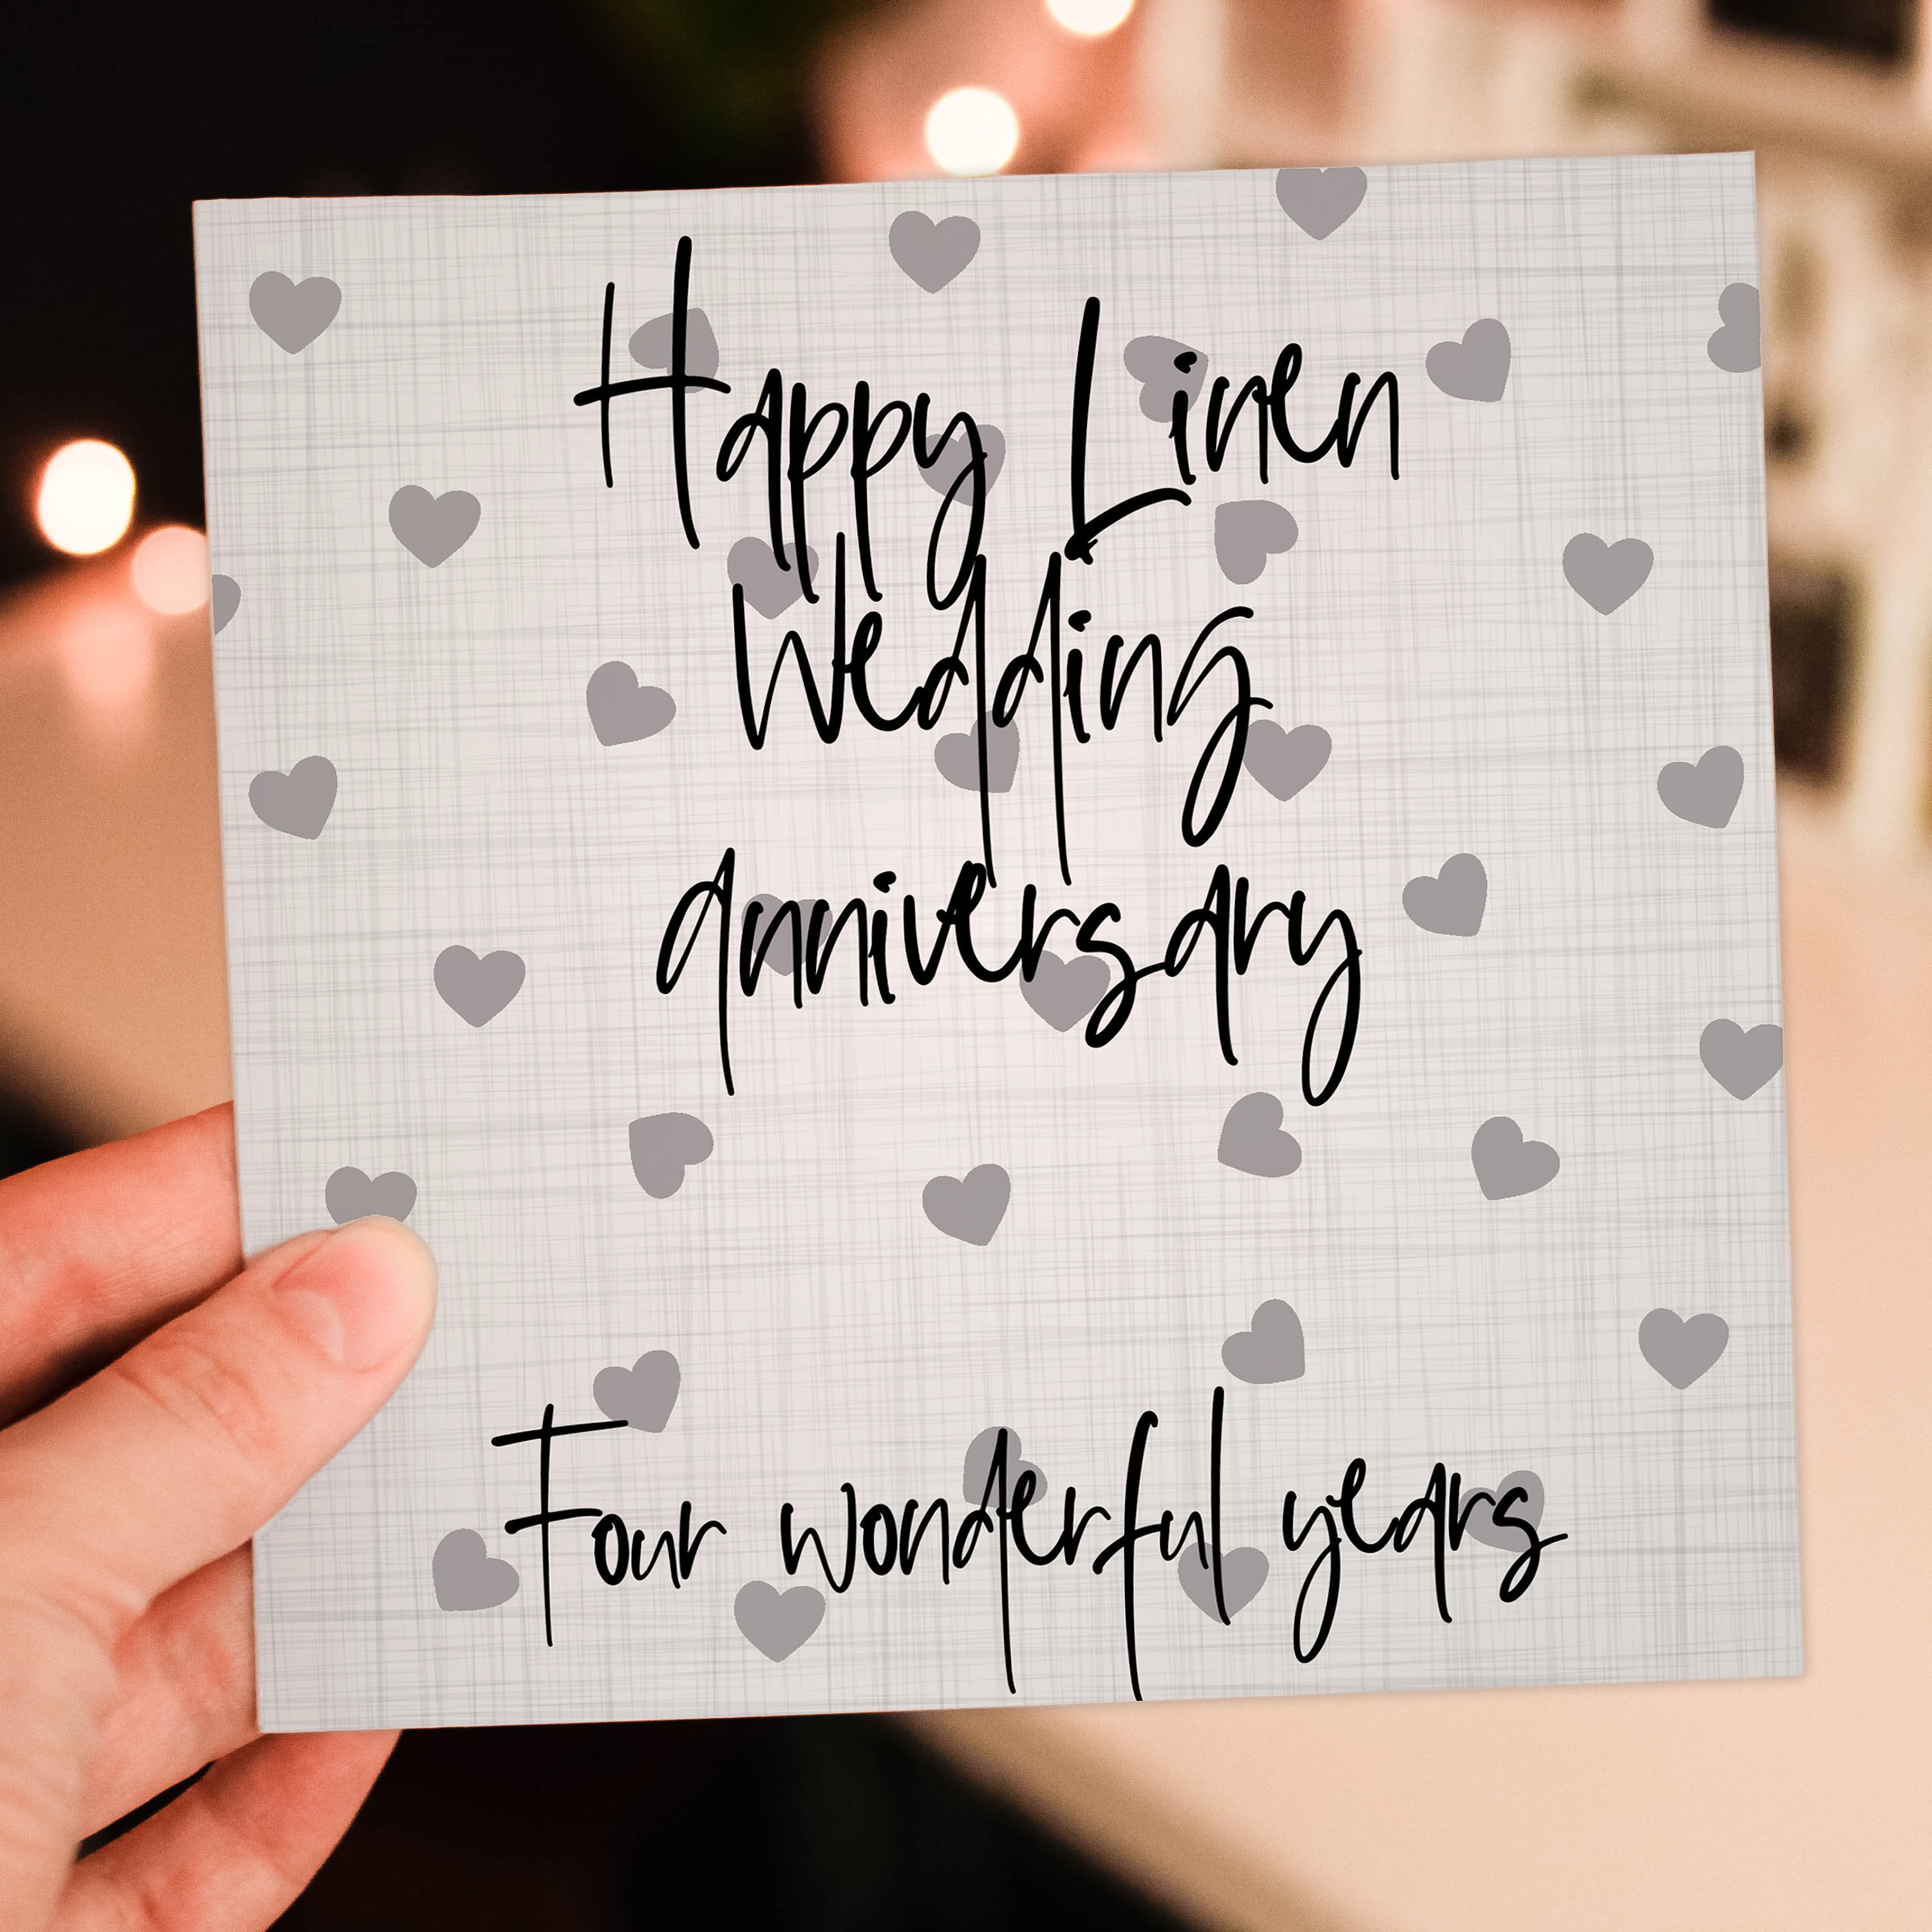 Happy Linen
Wedding
anniversary
Four wonderful years